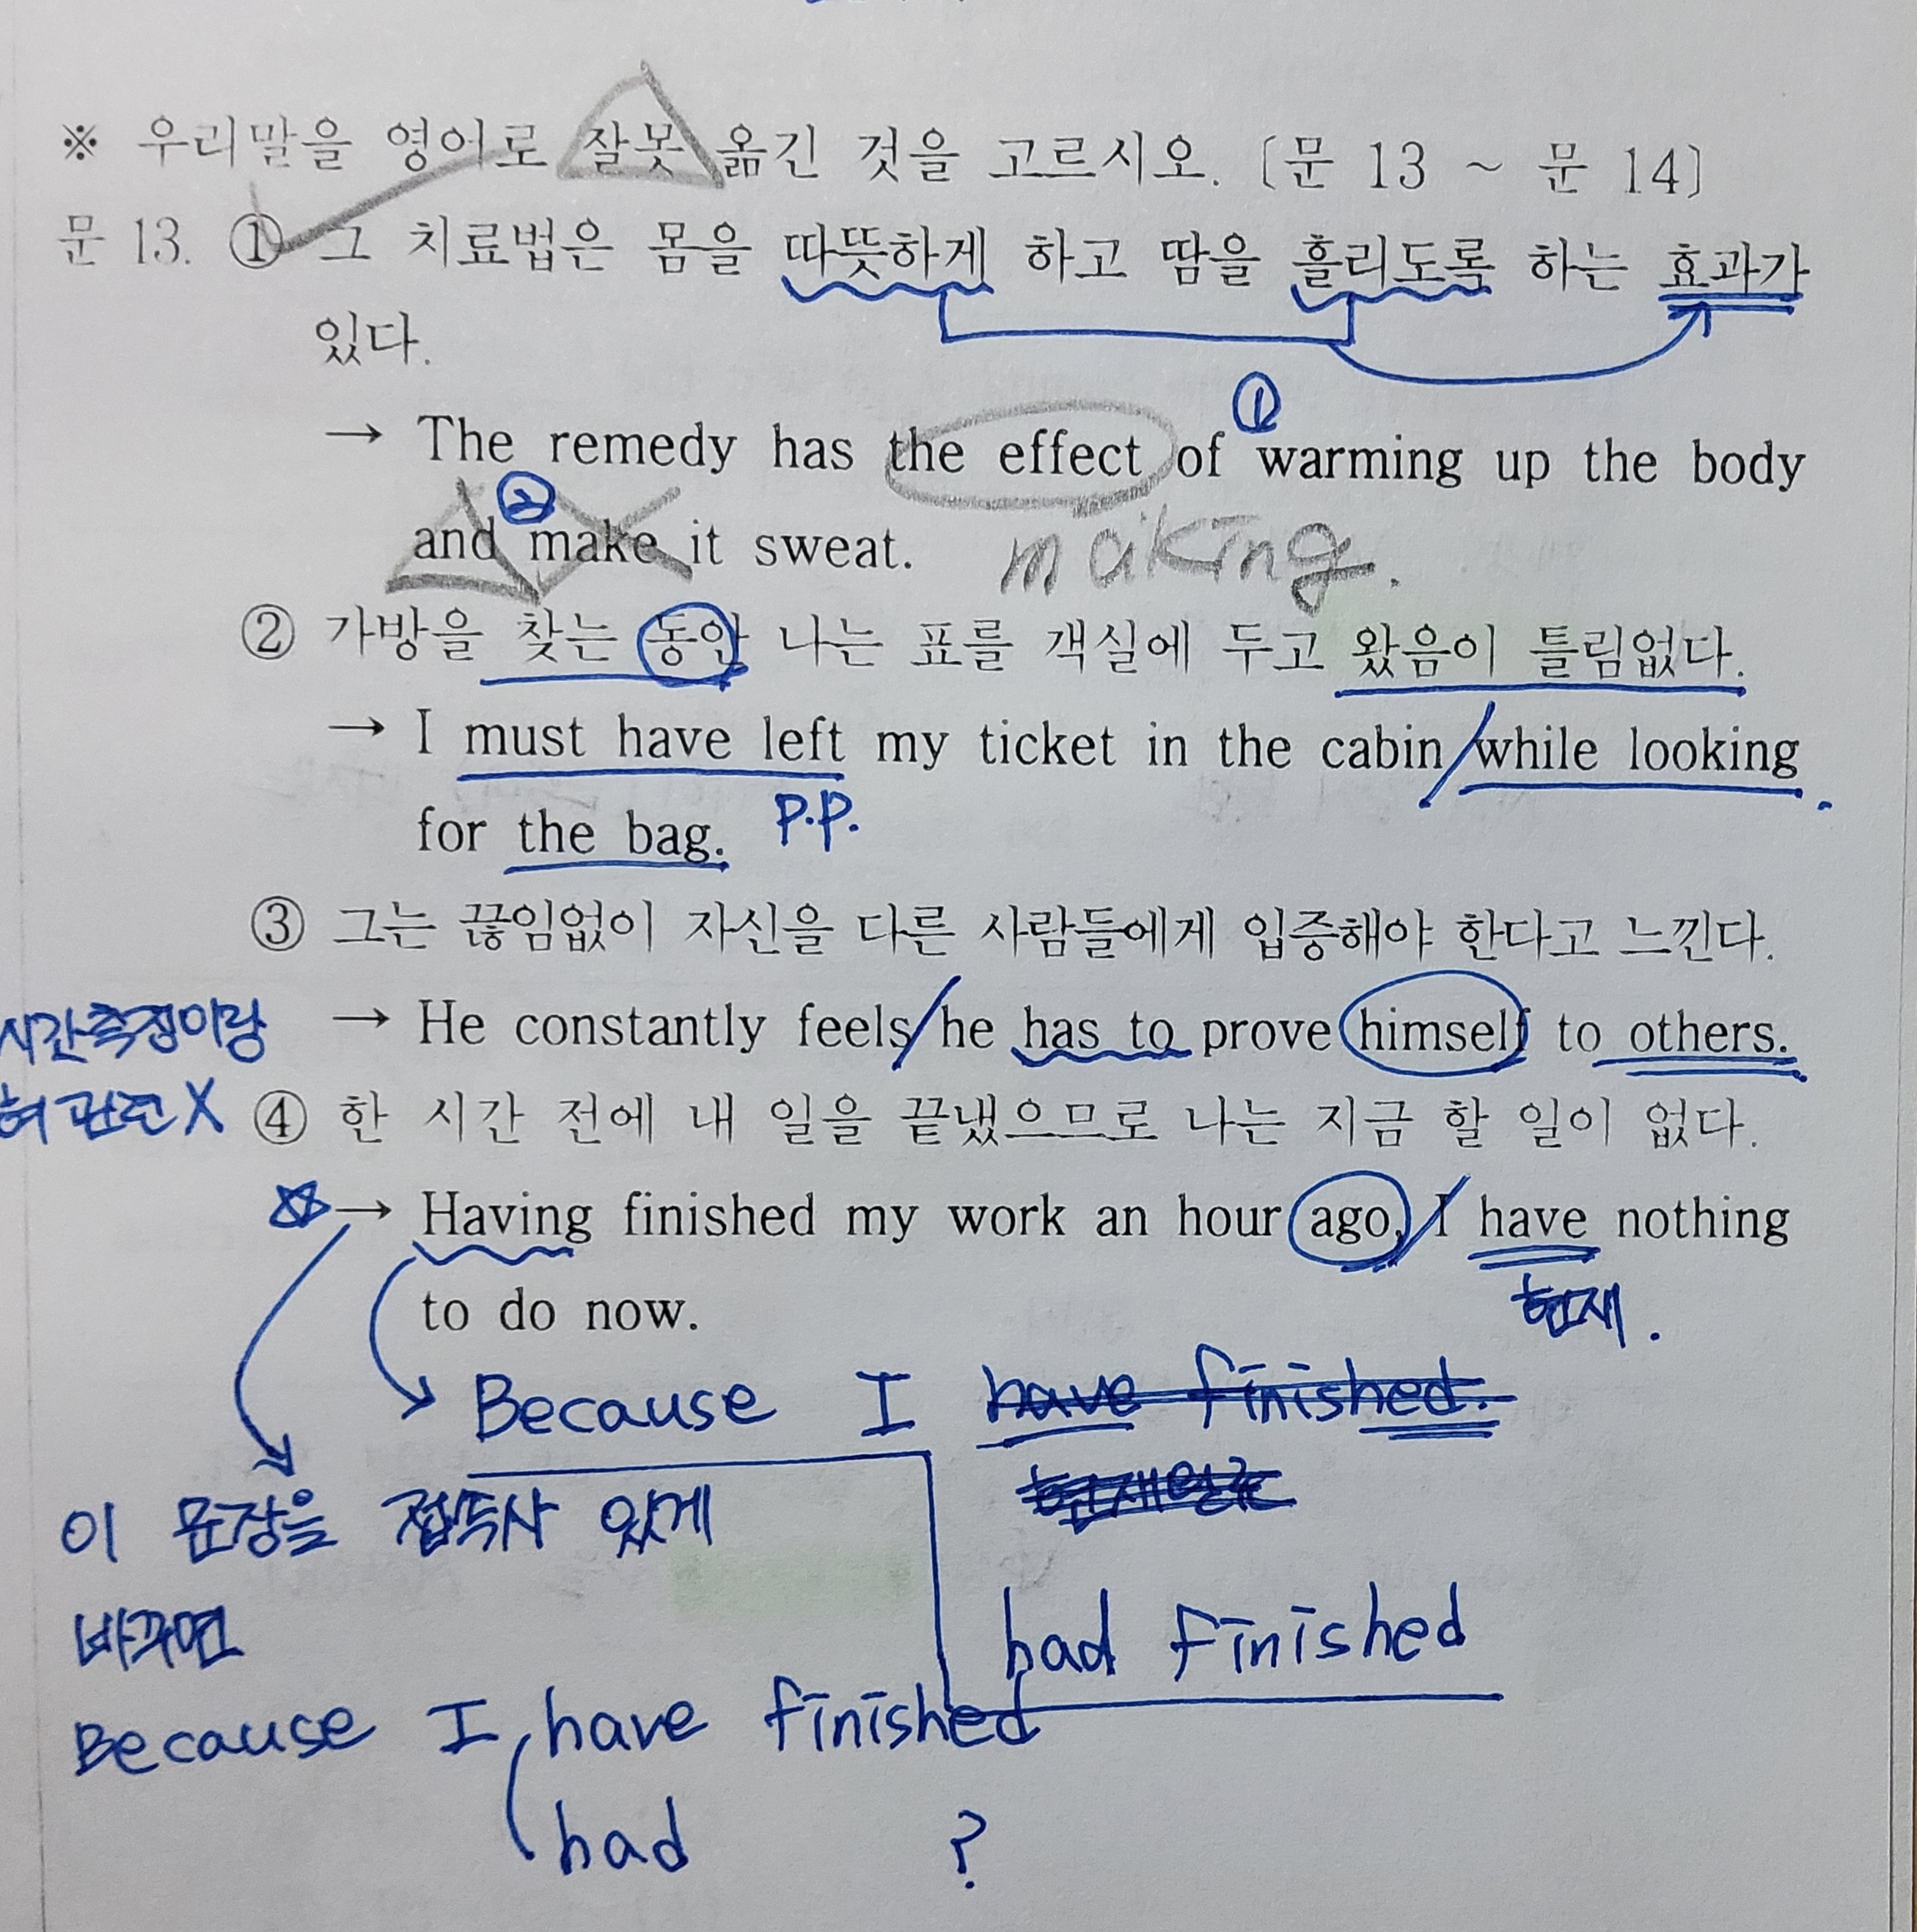 ※ 우리말을 영어로 잘못 옮긴 것을 고르시오. [문 13 ~ 문 14]
문 13. ① 그 치료법은 몸을 따뜻하게 하고 땀을 흘리도록 하는 효과가
있다.
①
→ The remedy has the effect of warming up the body
②
and make it sweat. making.
② 가방을 찾는 동안 나는 표를 객실에 두고 왔음이 틀림없다.
→ I must have left my ticket in the cabin while looking
for the bag. P.P.
③ 그는 끊임없이 자신을 다른 사람들에게 입증해야 한다고 느낀다.
시간측정이랑 → He constantly feels he has to prove himself to others.
관련 X ④ 한 시간 전에 내 일을 끝냈으므로 나는 지금 할 일이 없다.
→ Having finished my work an hour ago, I have nothing
to do now. 현재.
Because I have finished.
이 문장을 접속사 있게
바꾸면
had finished
Because I have finished
had ?